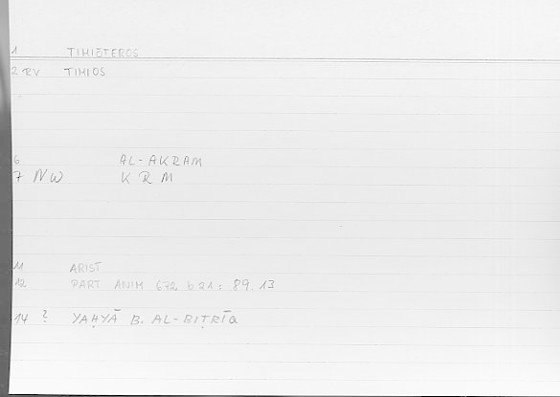 1 TIMIŌTEROS
2 RV TIMIOS
6 AL-AKRAM
7 NW K R M
11 ARIST
12 PART ANIM 672 b 21: 89.13
14 ? YAḤYĀ B. AL-BIṬRĪQ